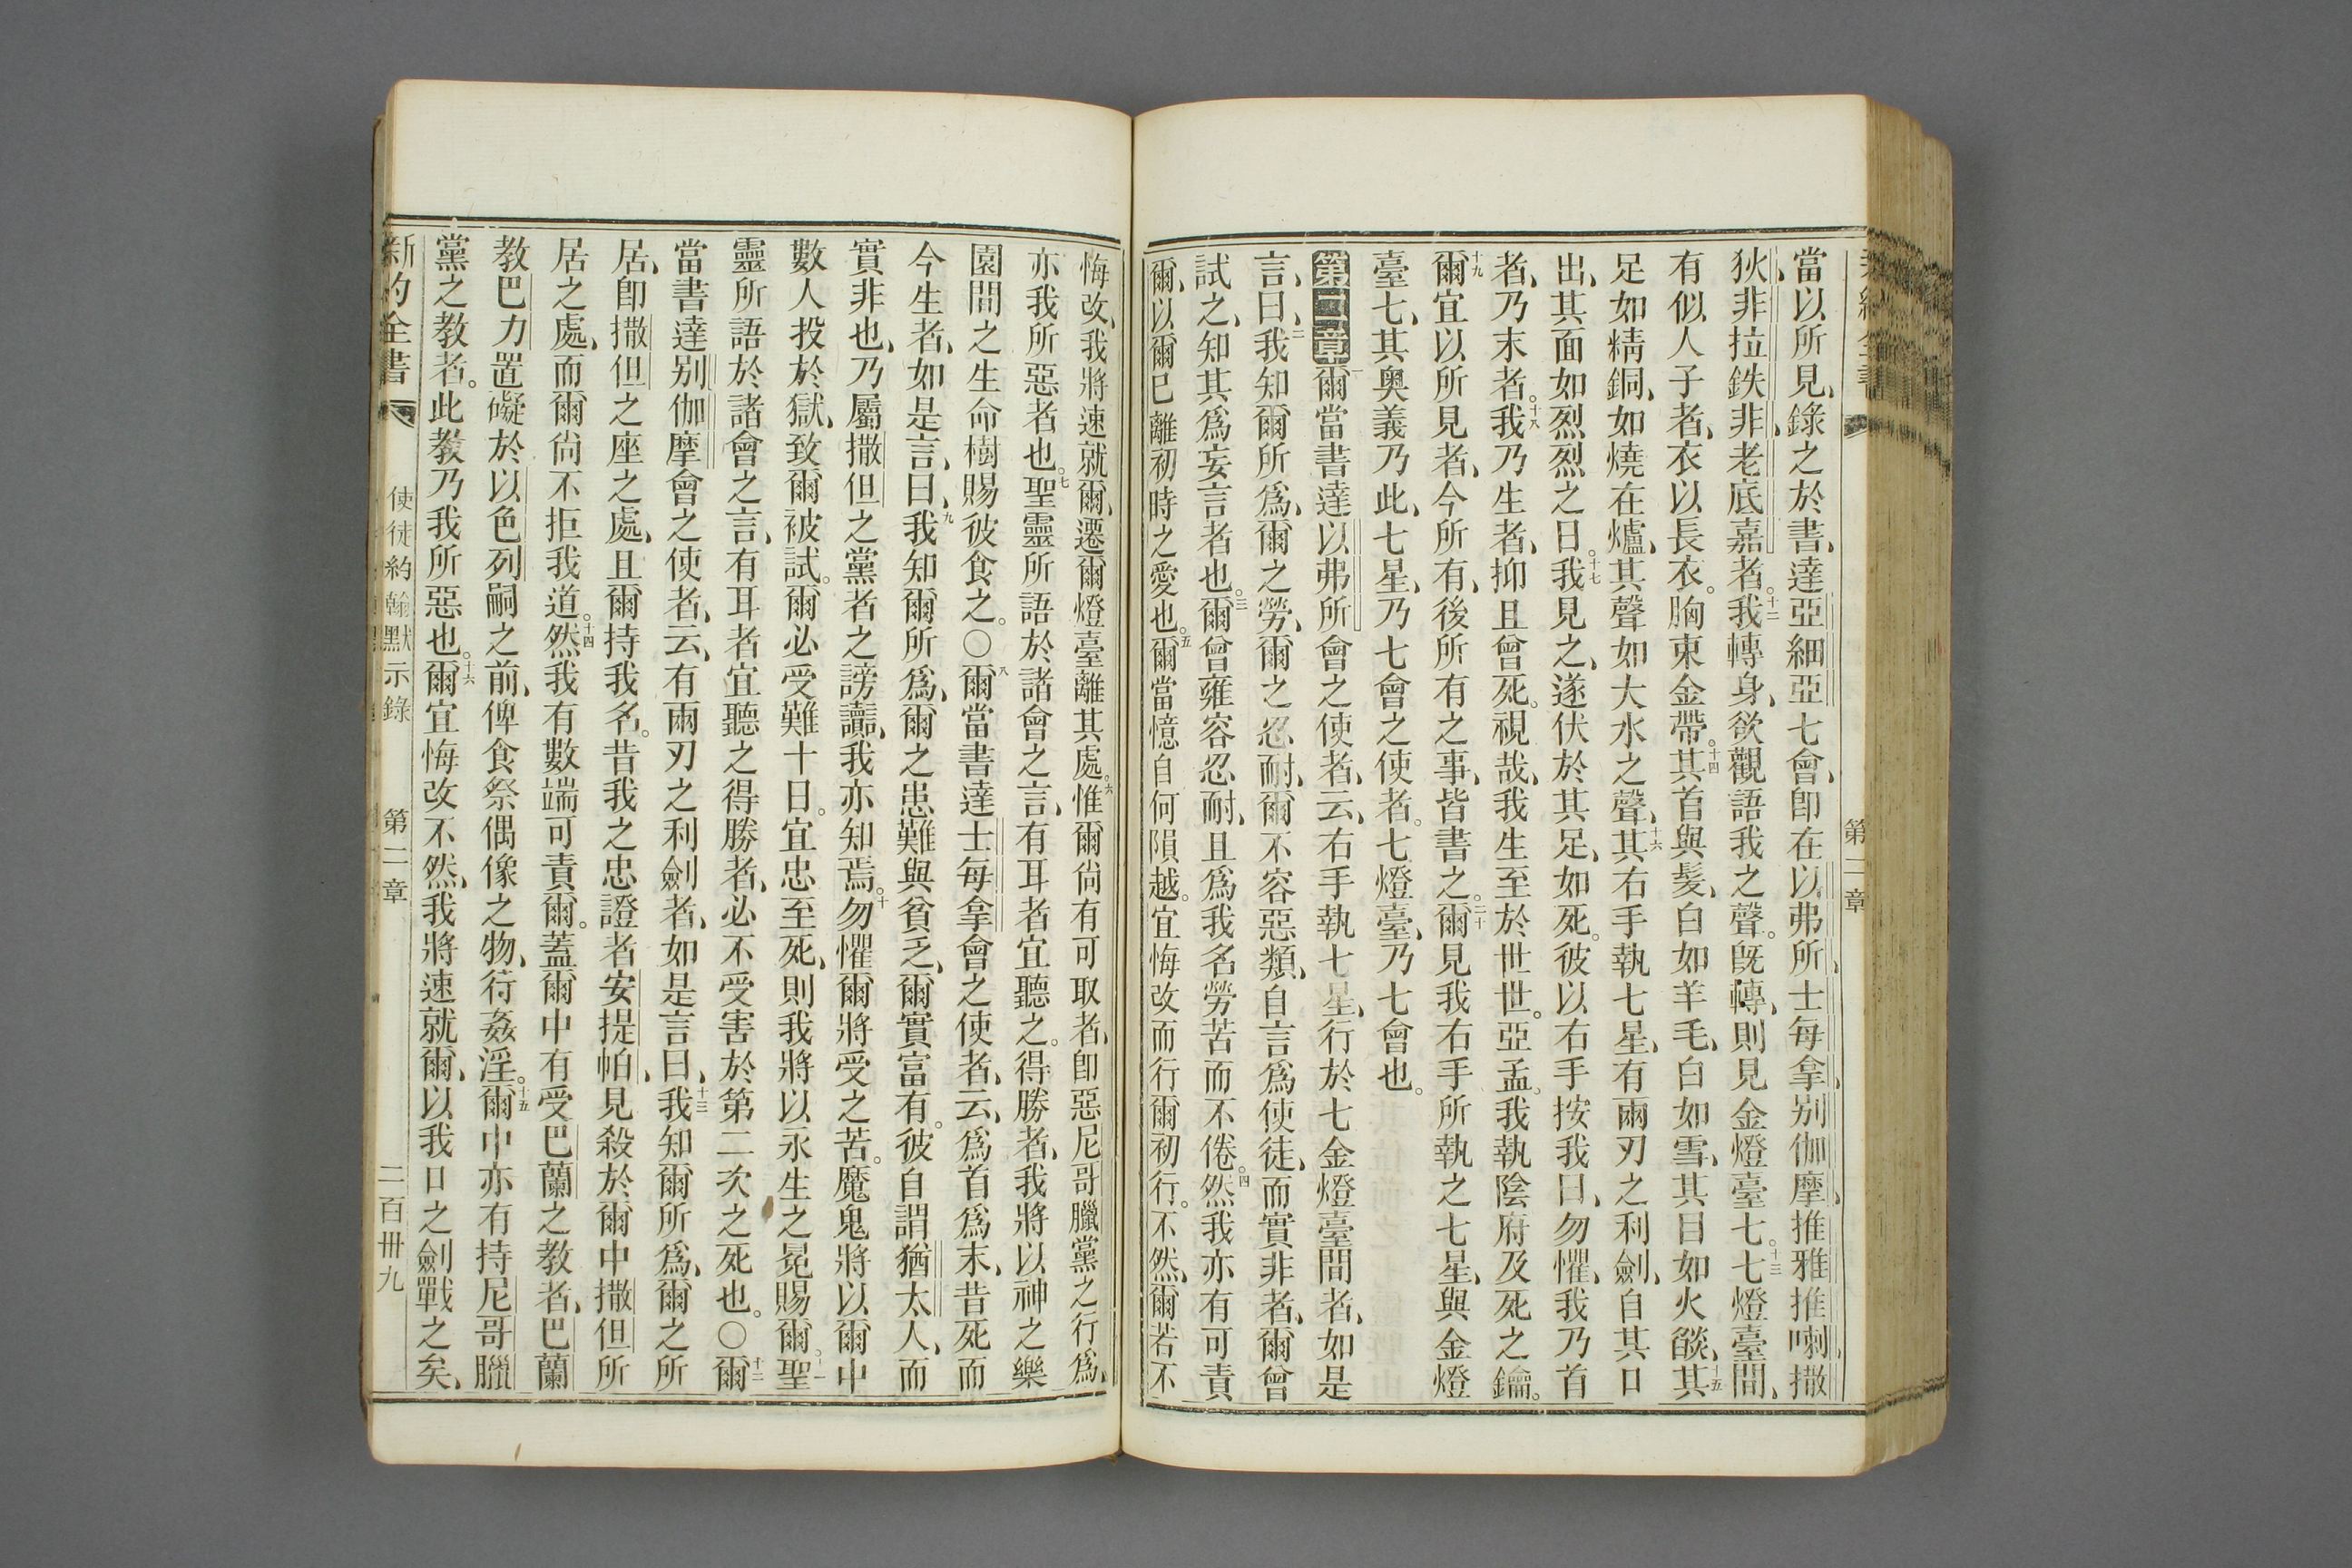 當以所見、錄之於書、達亞細亞七會、卽在以弗所、士每拿、别伽摩、推雅推喇、撒
狄、非拉鉄非、老底嘉者。十二我轉身、欲觀語我之聲。旣轉、則見金燈臺七。十三七燈臺間、
有似人子者、衣以長衣。胸束金帶。十四其首與髪、白如羊毛、白如雪、其目如火燄、十五其
足如精銅、如燒在爐、其聲如大水之聲、十六其右手執七星、有兩刃之利劍、自其口
出、其面如烈烈之日。十七我見之、遂伏於其足、如死。彼以右手按我曰、勿懼、我乃首
者、乃末者。十八我乃生者、抑且曾死。視哉、我生至於世世。亞孟。我執陰府及死之鑰。
十九爾宜以所見者、今所有、後所有之事、皆書之。二十爾見我右手所執之七星、與金燈
臺七、其奧義乃此、七星、乃七會之使者。七燈臺、乃七會也。
第二章 一爾當書達以弗所會之使者、云、右手執七星、行於七金燈臺間者、如是
言、曰、二我知爾所爲、爾之勞、爾之忍耐、爾不容惡類、自言爲使徒、而實非者、爾曾
試之、知其爲妄言者也。三爾曾雍容忍耐、且爲我名勞苦而不倦。四然我亦有可責
爾、以爾已離初時之愛也。五爾當憶自何隕越。宜悔改而行爾初行。不然、爾若不
第一章
悔改、我將速就爾、遷爾燈臺離其處。六惟爾尙有可取者、卽惡尼哥臘黨之行爲、
亦我所惡者也。七聖靈所語於諸會之言、有耳者宜聽之。得勝者、我將以神之樂
園間之生命樹賜彼食之。〇八爾當書達士每拿會之使者、云、爲首爲末、昔死而
今生者、如是言、曰、九我知爾所爲、爾之患難與貧乏、爾實富有。彼自謂猶太人、而
實非也、乃屬撒但之黨者之謗讟、我亦知焉。十勿懼爾將受之苦。魔鬼將以爾中
數人投於獄、致爾被試。爾必受難十日。宜忠至死、則我將以永生之冕賜爾。十一聖
靈所語於諸會之言、有耳者宜聽之得勝者、必不受害於第二次之死也。〇十二爾
當書達别伽摩會之使者、云、有兩刃之利劍者、如是言曰、十三我知爾所爲、爾之所
居、卽撒但之座之處、且爾持我名。昔我之忠證者安提帕、見殺於爾中撒但所
居之處、而爾尙不拒我道。十四然我有數端可責爾。蓋爾中有受巴蘭之教者、巴蘭
教巴力置礙於以色列嗣之前、俾食祭偶像之物、行姦淫。十五爾中亦有持尼哥臘
黨之教者。此教乃我所惡也。十六爾宜悔改不然、我將速就爾、以我口之劍戰之矣、
新約全書
使徒約翰默示錄
第二章
二百卅九